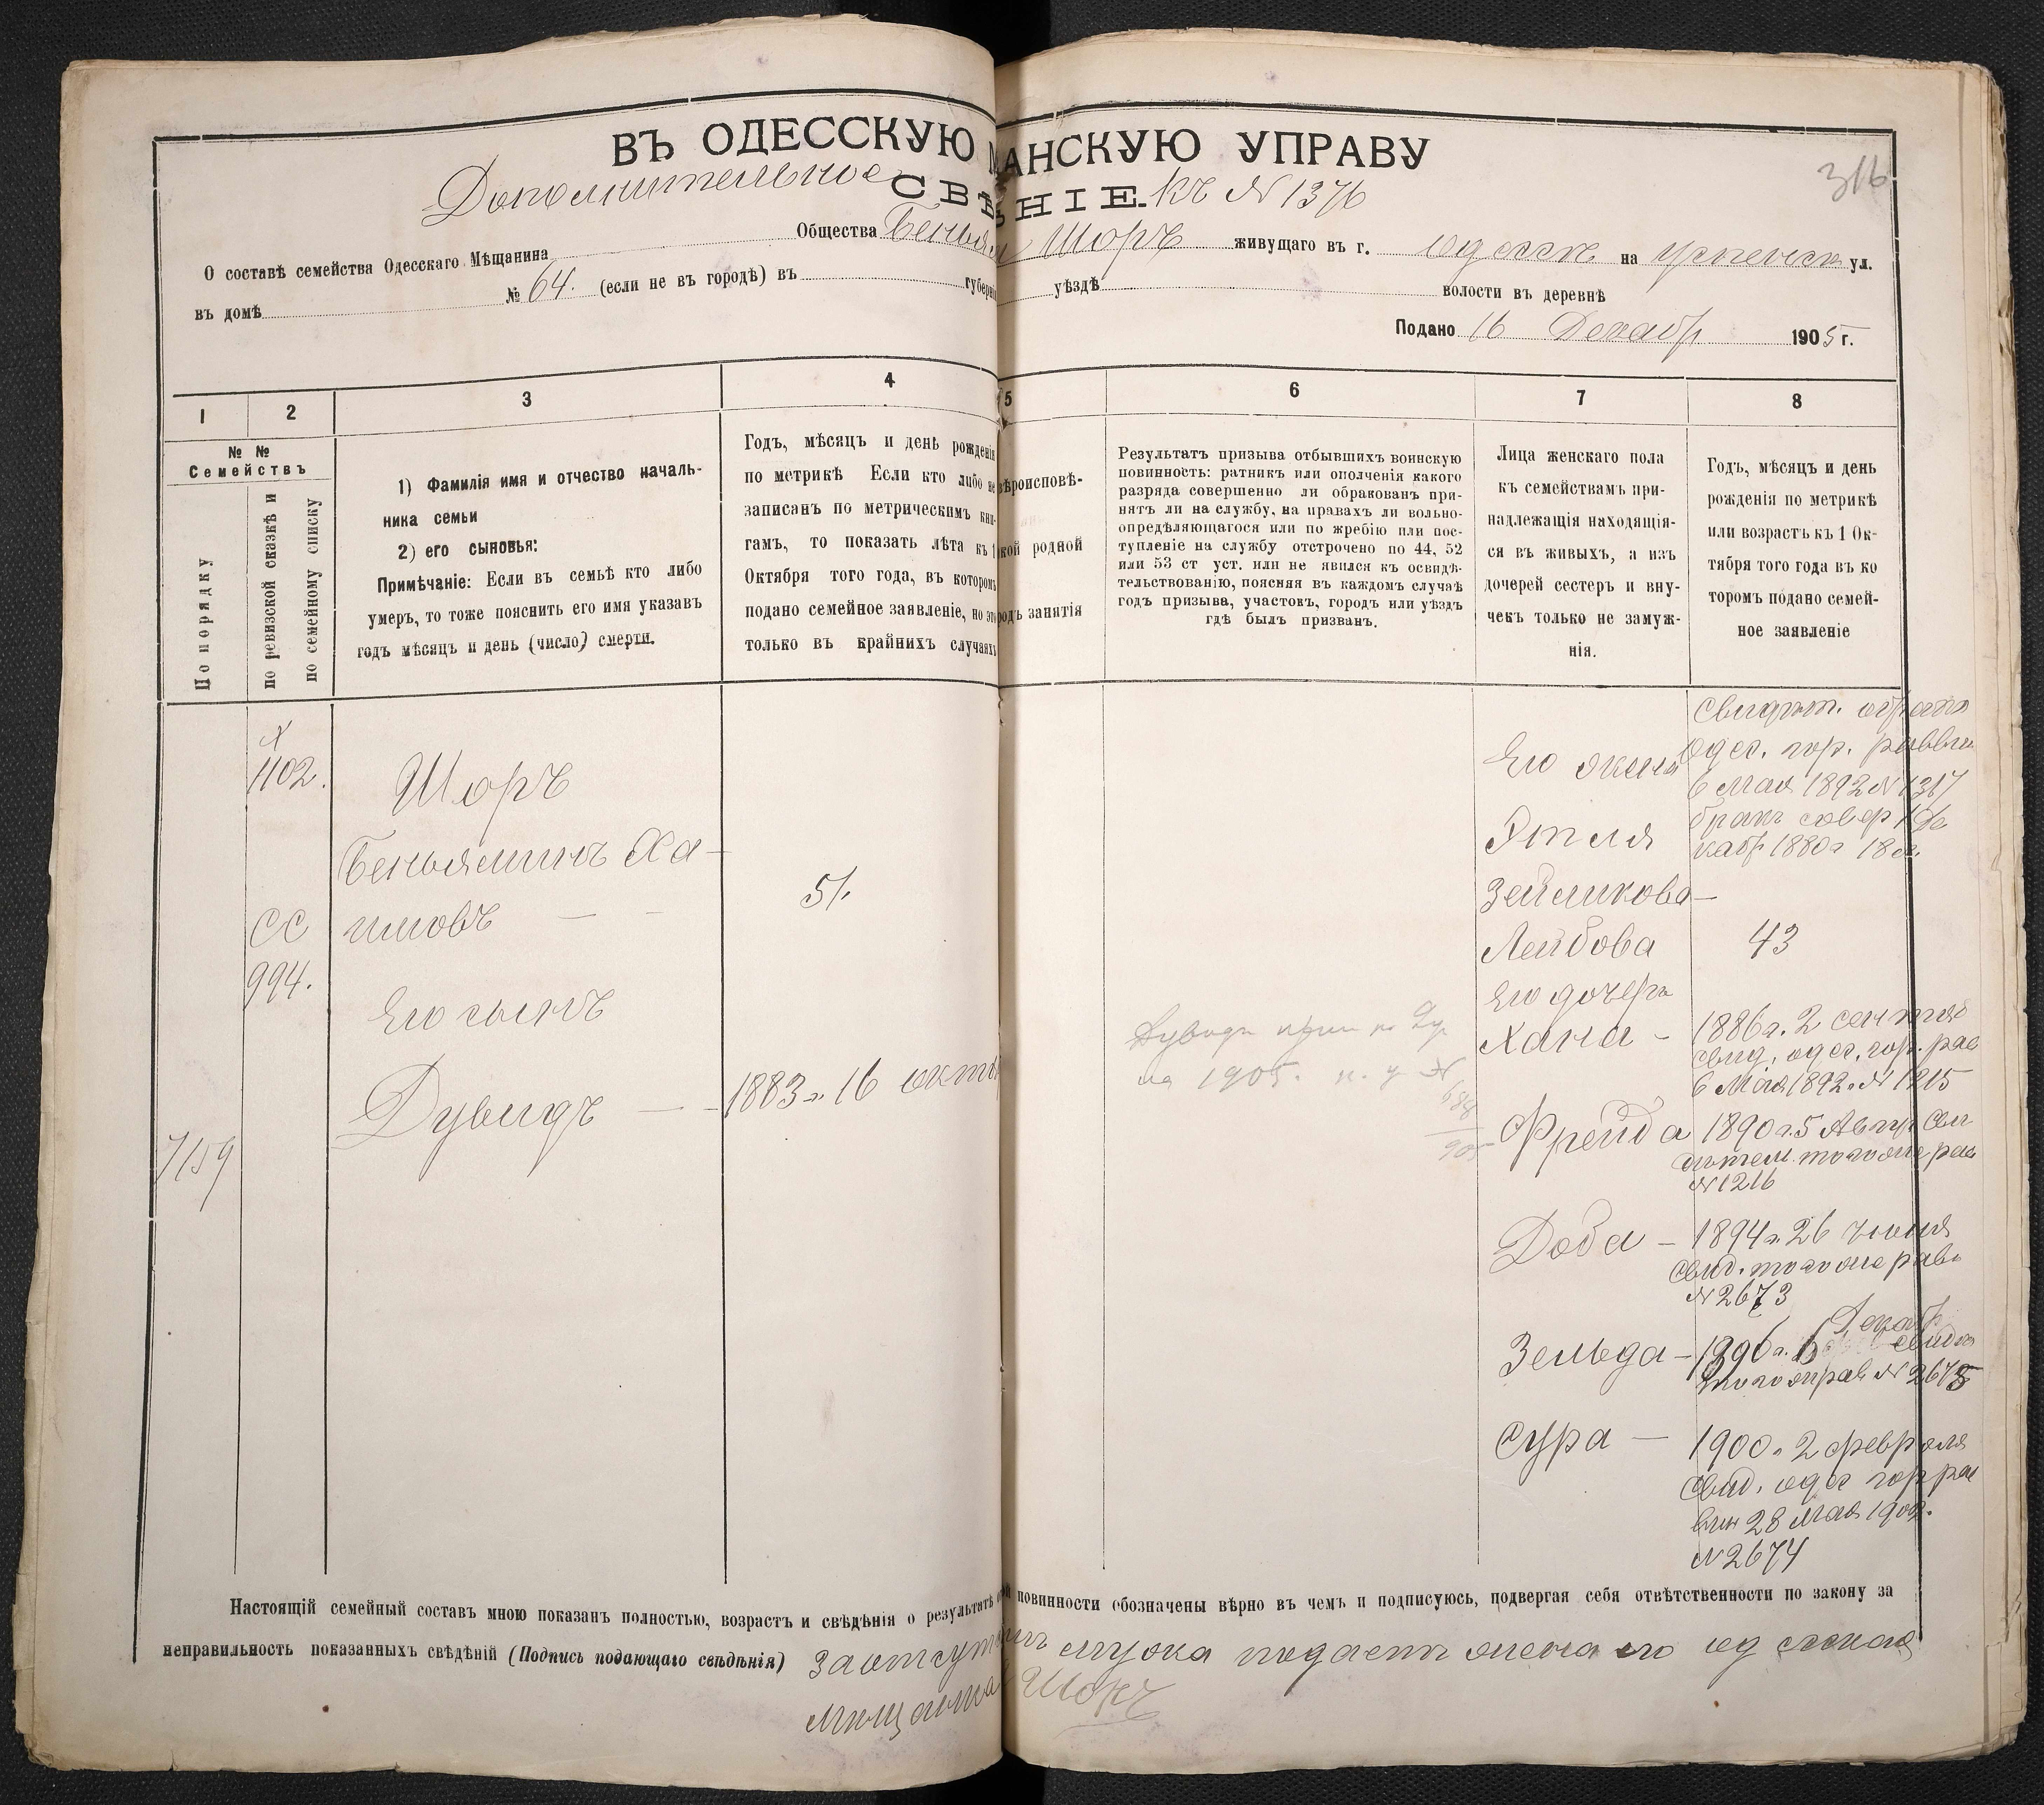 ВЪ ОДЕССКУЮ МАНСКУЮ УПРАВУ
316
Дополнительное СВѢНІЕ. къ № 1376
О составѣ семейства Одесскаго Мѣщанина Общества Беньям Шоръ живущаго въ г. Одессѣ на Успенск ул.
въ домѣ № 64. (если не въ городѣ) въ губерні уѣздѣ волости въ деревнѣ
Подано 16 Декабр 1905 г.
1 2 3 4 5 6 7 8
№ №
Семействъ
По порядку
по ревизской сказкѣ и
по семейному списку
1) Фамилія имя и отчество началь-
ника семьи
2) его сыновья:
Примѣчаніе: Если въ семьѣ кто либо
умеръ, то тоже пояснить его имя указавъ
годъ мѣсяцъ и день (число) смерти.
Годъ, мѣсяцъ и день рожденія
по метрикѣ Если кто либо не
записанъ по метрическимъ кни-
гамъ, то показать лѣта къ 1
Октября того года, въ которомъ
подано семейное заявленіе, но это
только въ крайнихъ случаяхъ
вѣроисповѣ-
кой родной
родъ занятія
Результатъ призыва отбывшихъ воинскую
повинность: ратникъ или ополченія какого
разряда совершенно ли обракованъ при-
нятъ ли на службу, на правахъ ли вольно-
опредѣляющагося или по жребію или пос-
тупленіе на службу отстрочено по 44, 52
или 53 ст уст. или не явился къ освидѣ-
тельствованію, поясняя въ каждомъ случаѣ
годъ призыва, участокъ, городъ или уѣздъ
гдѣ былъ призванъ.
Лица женскаго пола
къ семействамъ при-
надлежащія находящія-
ся въ живыхъ, а изъ
дочерей сестеръ и вну-
чекъ только не замуж-
нія.
Годъ, мѣсяцъ и день
рожденія по метрикѣ
или возрастъ къ 1 Ок-
тября того года въ ко
торомъ подано семей-
ное заявленіе
1102.
СС
994.
7159
Шоръ
Беньяминъ Ха-
имовъ — —
51.
Его сынъ
Дувидъ — 1883 г. 16 октя
на 1905.
Его жена
Этля
Зейликова —
Лейбова
43
Свидѣт.
Одес. гор. раввин
6 Мая 1892 № 1317
бракъ совер 1 Де
кабр 1880 г 18 л.
Его дочери
Хана — 1886 г. 2 сентяб
свид. одес. гор. рав
6 Мая 1892 г. № 1215
Фрейда 1890 г. 5 Авгус Сви
дѣтел. тогоже рав
№ 1216
Доба — 1894 г. 26 Июня
свид. тогоже рав
№ 2673
Зельда — 1896 г. 6 Декабр
свидѣт
тогоже рав № 2675
Сура — 1900 г. 2 февраля
свид. одес гор рав
вин 28 Мая 1902.
№ 2674
Настоящій семейный составъ мною показанъ полностью, возрастъ и свѣдѣнія о результатѣ повинности обозначены вѣрно въ чемъ и подписуюсь, подвергая себя отвѣтственности по закону за
неправильность показанныхъ свѣдѣній (Подпись подающаго свѣдѣнія) За отсутствіемъ мужа подаетъ жена его одесская
мѣщанка Шоръ